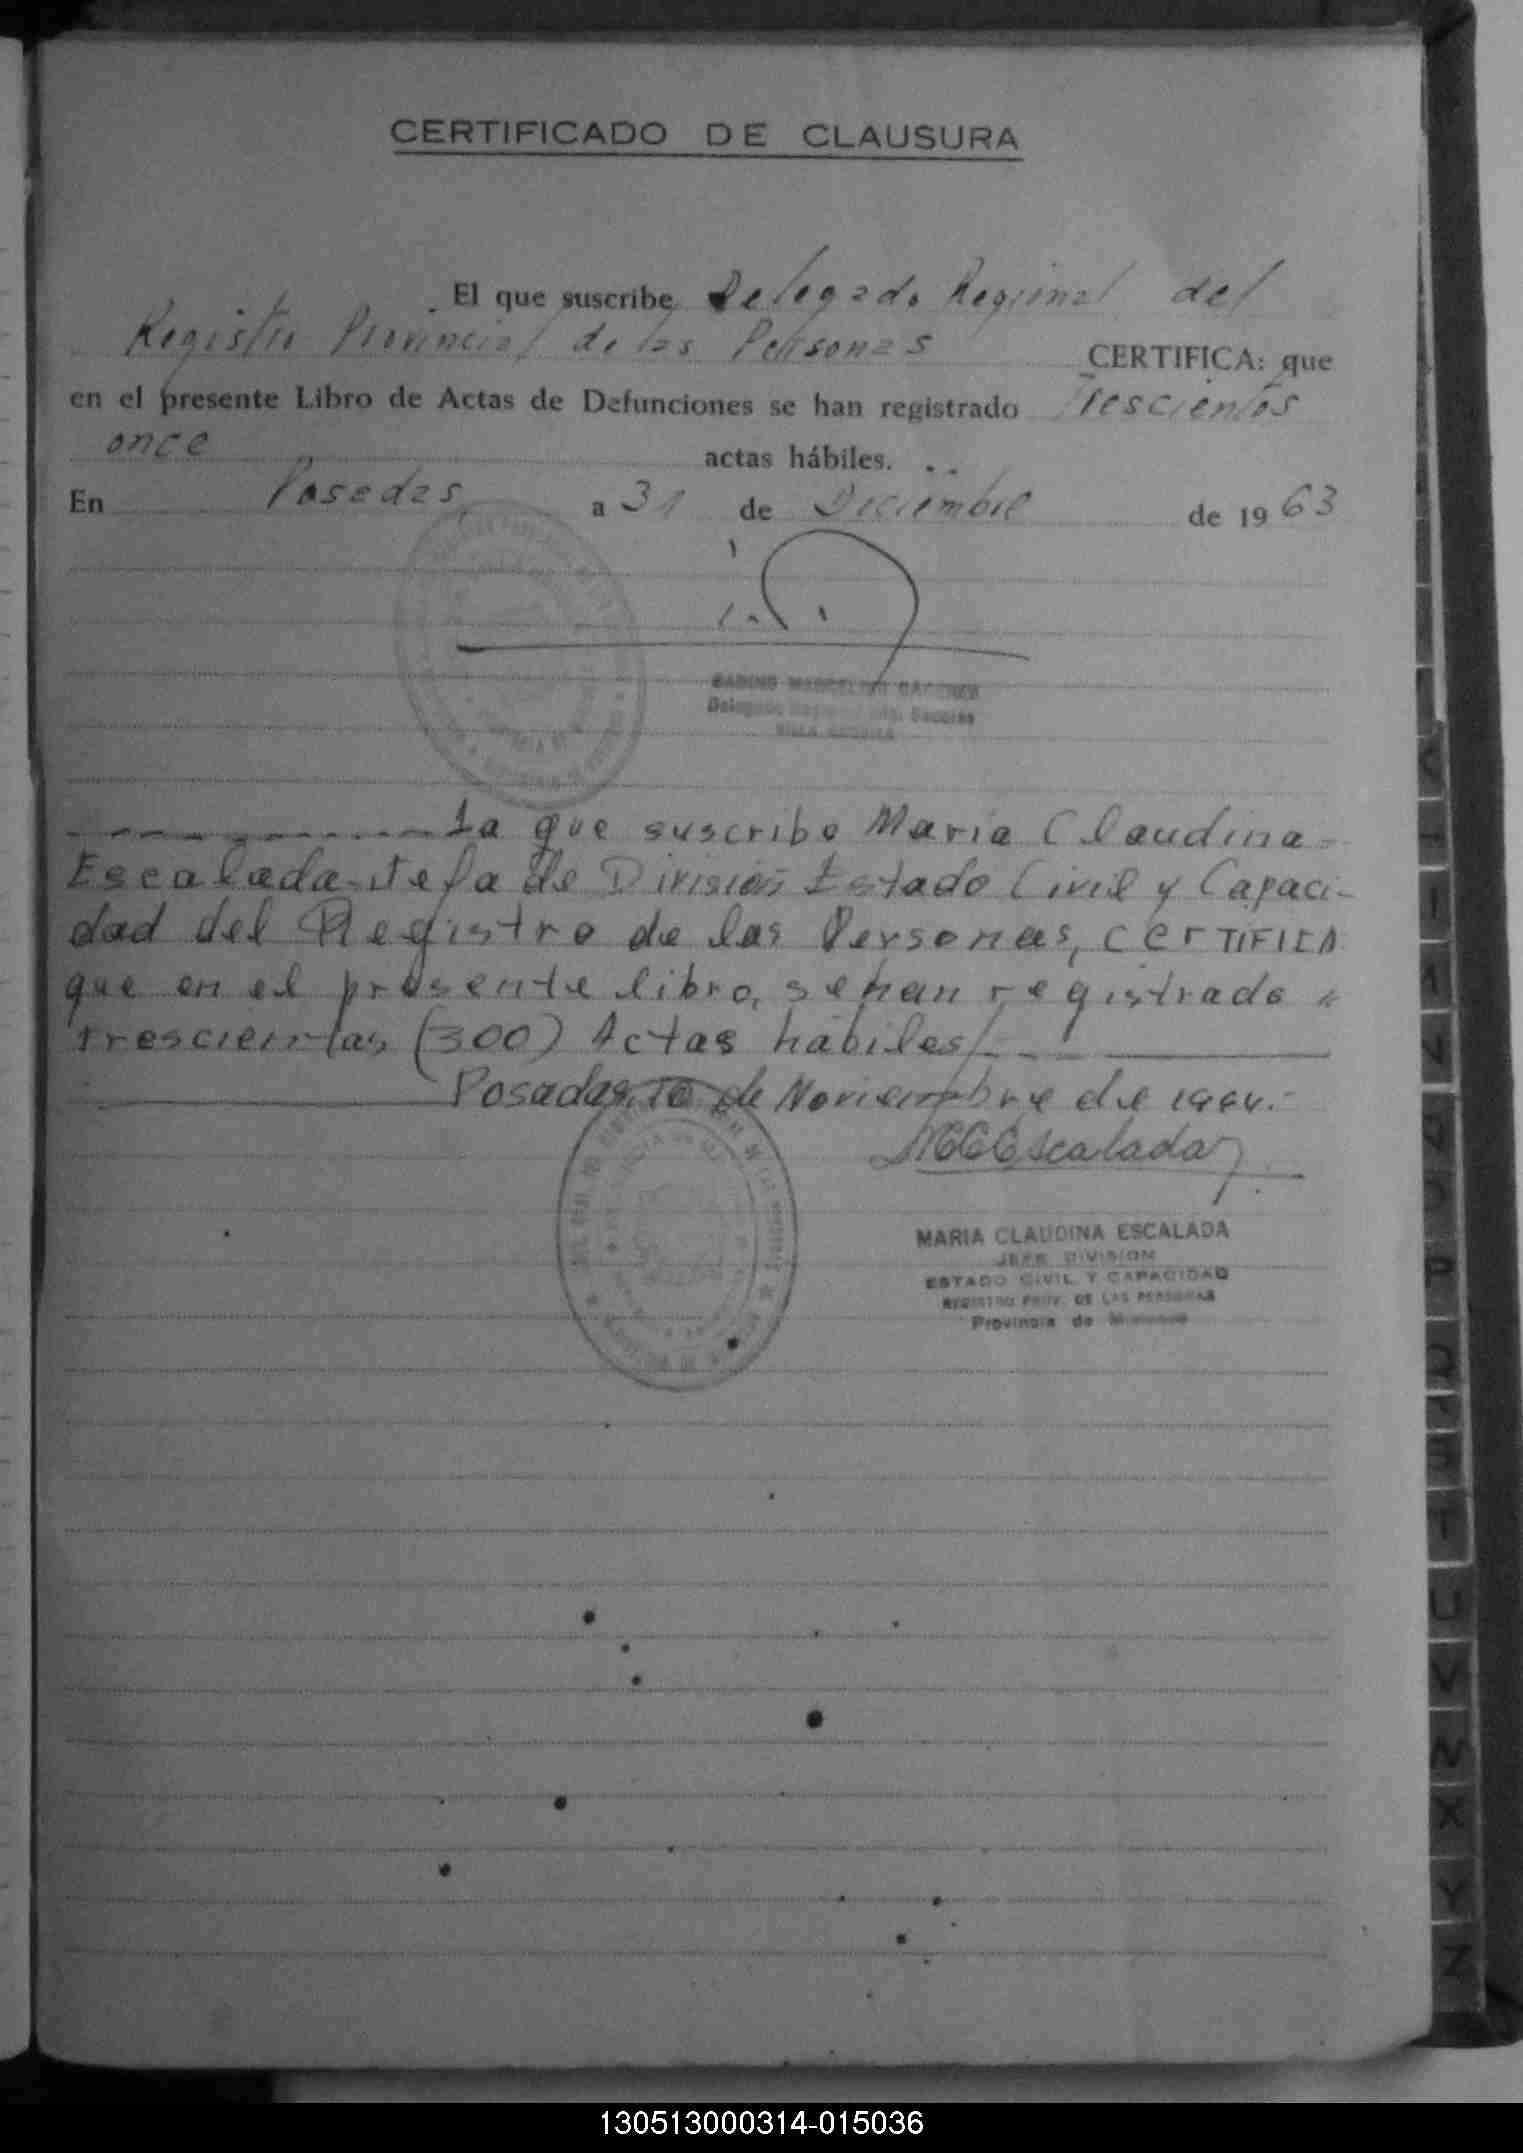 CERTIFICADO DE CLAUSURA
El que suscribe Delegado Regional del
Registro Provincial de las Personas CERTIFICA: que
en el presente Libro de Actas de Defunciones se han registrado Trescientos
once actas hábiles.
En Posadas a 31 de Diciembre de 1963
Delegado
La que suscribe Maria Claudina
Escalada Jefa de División Estado Civil y Capaci-
dad del Registro de las Personas, CERTIFICA
que en el presente libro, se han registrado
trescientas (300) Actas hábiles
Posadas, 10 de Noviembre de 1964.
MCEscalada
MARIA CLAUDINA ESCALADA
JEFE DIVISION
ESTADO CIVIL Y CAPACIDAD
REGISTRO PROV. DE LAS PERSONAS
Provincia de Misiones
P
Q
T
U
V
X
Y
Z
130513000314-015036